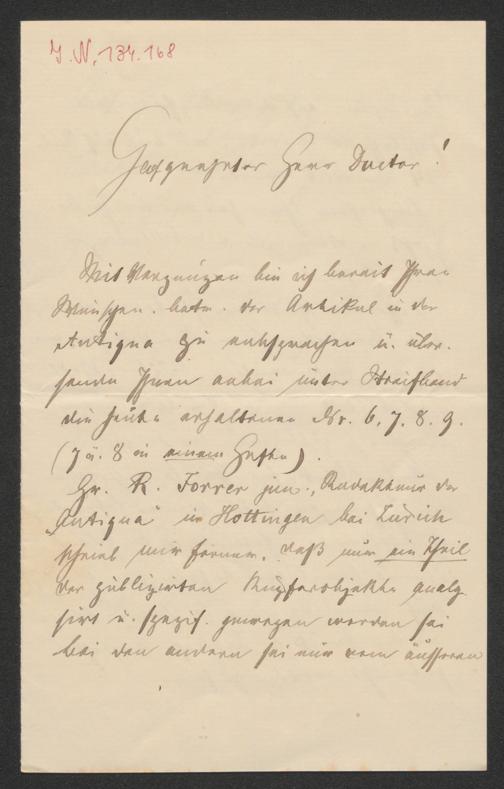 J. N. 134.168
Hochgeehrter Herr Doctor!
Mit Vergnügen bin ich bereit Ihren
Wünschen betr. der Artikel in der
Antiqua zu entsprechen u. über-
sende Ihnen anbei unter Streifband
die heute erhaltenen Nr. 6, 7, 8, 9.
(7 u. 8 in einem Hefte).
Hr. R. Forrer jun., Redakteur der
„Antiqua" in Hottingen bei Zürich
schrieb mir ferner, daß nur ein Theil
der publizirten Kupferobjekte analy-
sirt u. spezif. gewogen worden sei
bei den andern sei nur vom äußeren